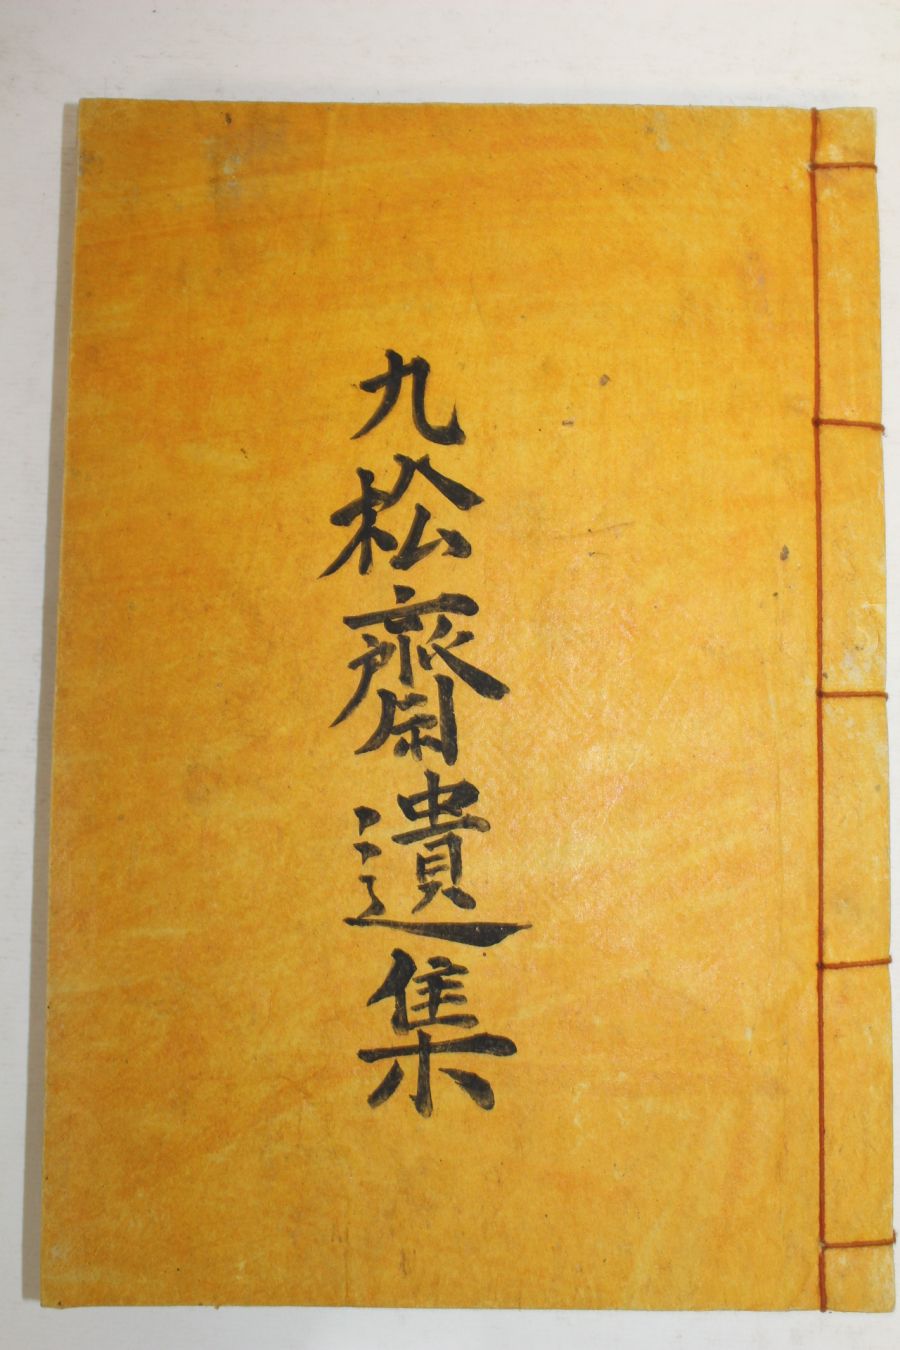 九松齋遺集